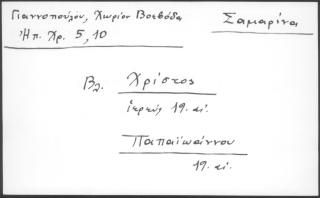 Γιαννοπούλου, Χωρίον Βοεβόδα
Ἠπ. Χρ. 5, 10
Σαμαρίνα
Βλ. Χρίστος
ἱερεύς 19. αἰ.
Παπαϊωάννου
19. αἰ.